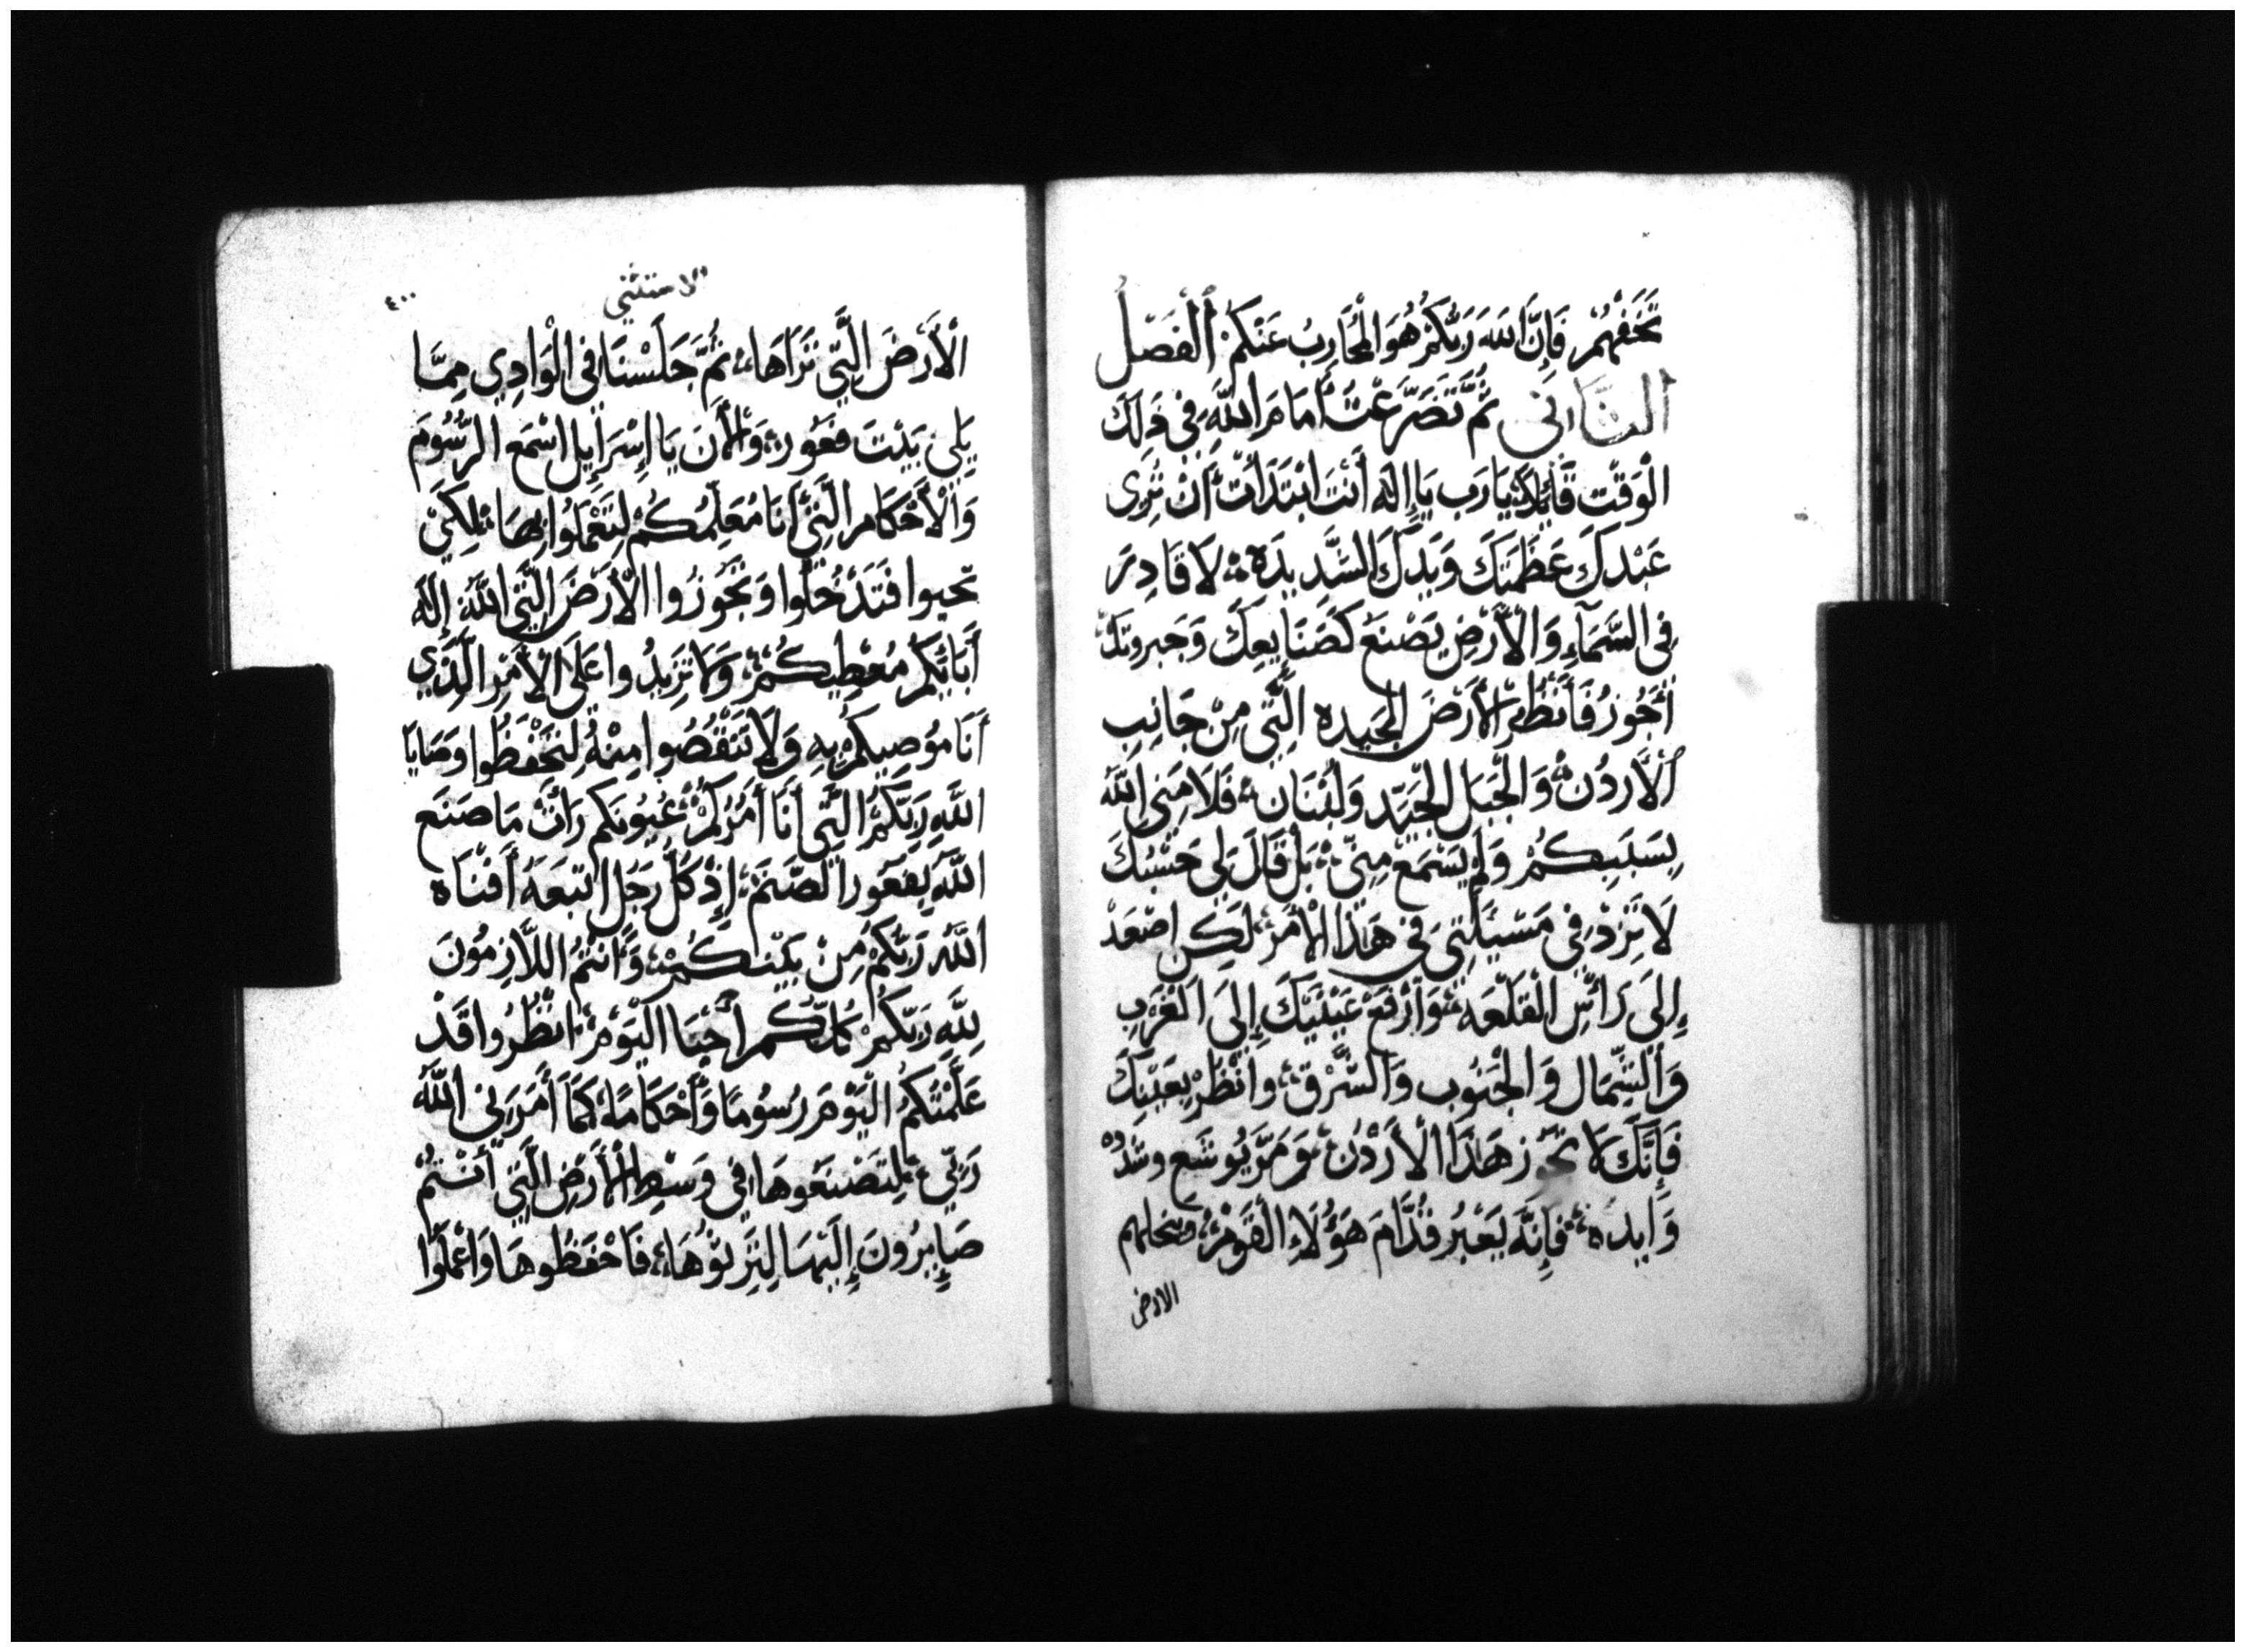 تَخَفْهُمْ فَإِنَّ اللهَ رَبُّكُمْ هُوَ الْمُحَارِبُ عَنْكُمْ الْفَصْلُ
الثَّانَى ثُمَّ تَضَرَّعْتُ أَمَامَ اللَّهِ فِي ذَلِكَ
الْوَقْتِ قَائِلًا يَا رَب يَا إِلَه أَنْتَ ابْتَدَأْتَ أَنْ تُرِى
عَبْدكَ عَظَمَتَكَ وَيَدكَ الشَّدِيدَه لَا قَادِرَ
فِى السَّمَآءِ وَالْأَرْضِ يَصْنَع كَصَنَايِعِكَ وَجَبروتكَ
أَجُوزُ فَأَنْظُر الْأَرْضَ الْجَيده الَّتِي مِنْ جَانِبِ
الْأَرْدُن وَالْجَبَل الْجَيّد وَلُبْنَان فَلَامَنِي اللَّهُ
بِسَبَبِكُمْ وَلَمْ يَسْمَعْ مِنِّي بَلْ قَالَ لِي حَسْبُكَ
لَا تَزِدْ فِي مَسْئَلَتِي فِي هَذَا الْأَمْرِ لَكِن اصْعَدْ
إِلَى رَأْسِ الْقَلْعَه وَارْفَعْ عَيْنَيْكَ إِلَى الْغَرْبِ
وَالشِّمَال وَالْجَنُوب وَالشَّرْق وانْظُرْ بِعَيْنَيْكَ
فَإِنَّكَ لَا تَجُوز هَذَا الْأَرْدُن وَمُرَّ يُوشَع وشَدّده
وَأَيده فَإِنَّه يَعْبُر قُدَّامَ هَؤُلَاءِ الْقَوْمِ وينحلهم
الارض
الاستثنى
٤٠٠
الْأَرْضَ الَّتِي تَرَاهَا ثُمَّ جَلَسْنَا فِي الْوَادِي مِمَّا
يَلِي بَيْتَ فَغُور وَالْأَنَ يَا إِسْرَائِيل اسْمَع الرُّسُومَ
وَالْأَحْكَام الَّتِي أَنَا مُعَلِّمُكُمْ لِتَعْمَلُوا بِهَا لِكَيْ
تحيوا فَتَدْخُلُوا وَتَجُوزُوا الْأَرْضَ الَّتِي اللَّهُ إِلَه
أَبَائِكُمْ مُعْطِيكُمْ وَلَا تَزِيدُوا عَلَى الْأَمْرِ الَّذِي
أَنَا مُوصِيكُمْ بِهِ وَلَا تَنْقُصُوا مِنْهُ لِتَحْفَظُوا وَصَايَا
اللَّهِ رَبّكُمُ الَّتِي أَنَا أَمُرُكُمْ عُيُونكم رَأَتْ مَا صَنَع
اللَّه بِفَغُور الصَّنَم إِذْ كُلُّ رَجُل اتبَعَهُ أَفْنَاه
اللَّه رَبّكُمْ مِنْ بَيْنِكُمْ وَأَنْتُمُ اللَّازِمُونَ
لِلَّهِ رَبّكُمْ كُلّكُم أَحْيَا الْيَوْمَ انْظُرُوا قَدْ
عَلَّمْتُكُمُ الْيَوْمَ رُسُومًا وَأَحْكَامًا كَمَا أَمَرَنِي اللَّهُ
رَبِّي لِتَصْنَعُوهَا فِي وَسْطِ الْأَرْضِ الَّتِي أَنْتُمْ
صَايِرُونَ إِلَيْهَا لِتَرِثُوْهَا فَاحْفَظُوهَا وَاعْمَلُوا